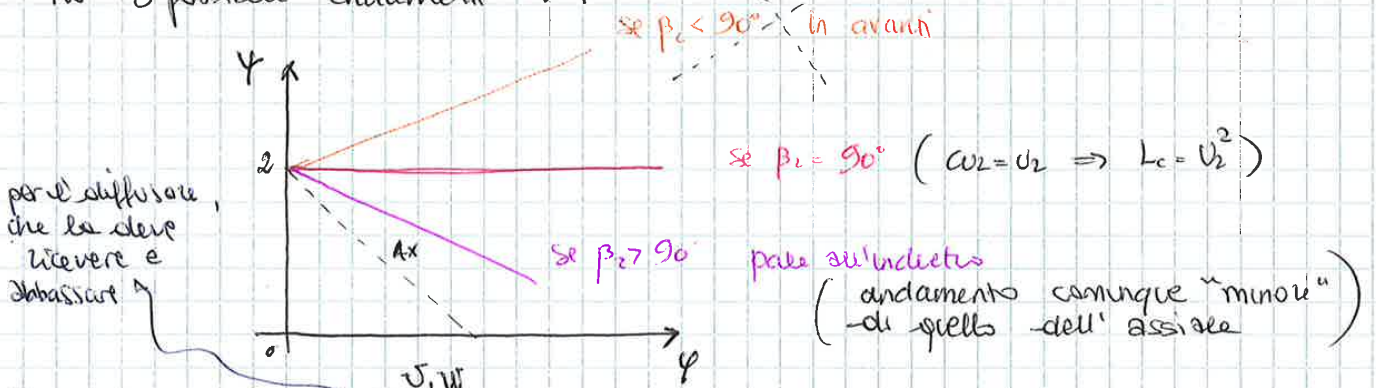 se β₂ < 90° in avanti
ψ
2
se β₂ = 90° ( cu2 = U2 ⇒ Lc = U2² )
per il diffusore,
che la deve
ricevere e
abbassare
Ax
se β₂ > 90 pale all'indietro
( andamento comunque "minore"
di quello dell'assiale )
0
φ